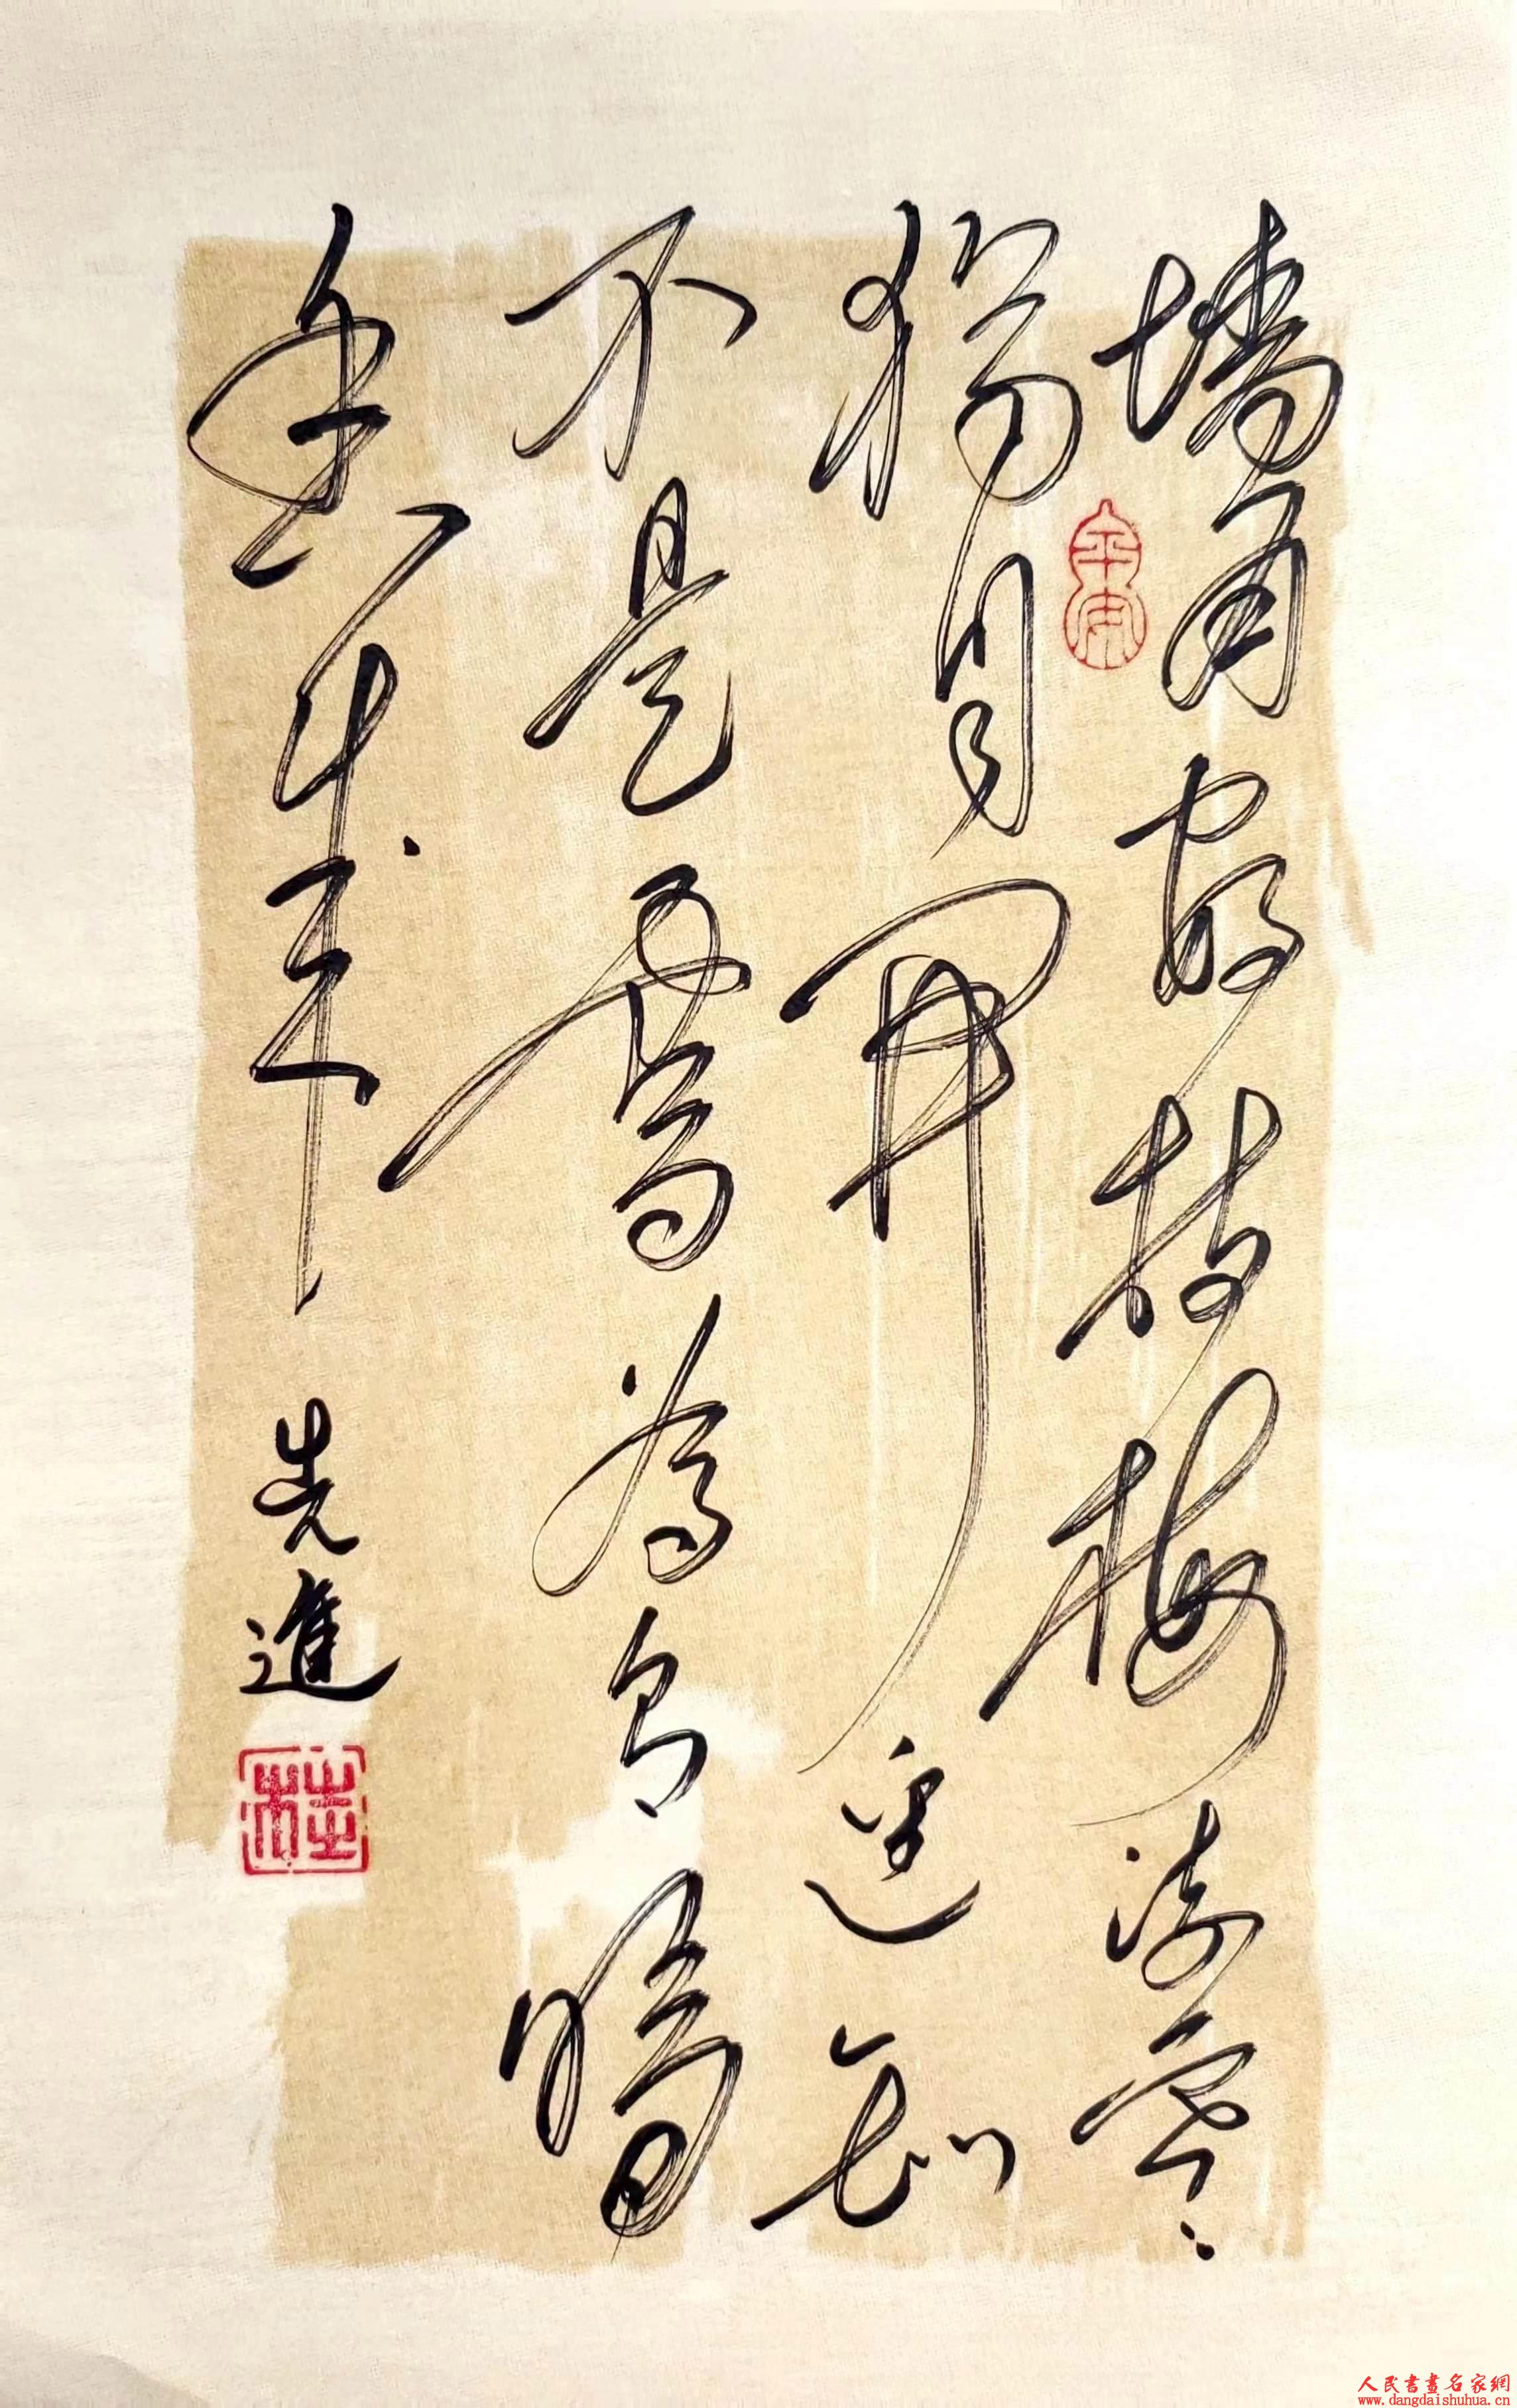 墙角数枝梅凌寒
獨自開遥知
不是雪為有暗
香来
先進
平安
人民書畫名家網
www.dangdaishuhua.cn